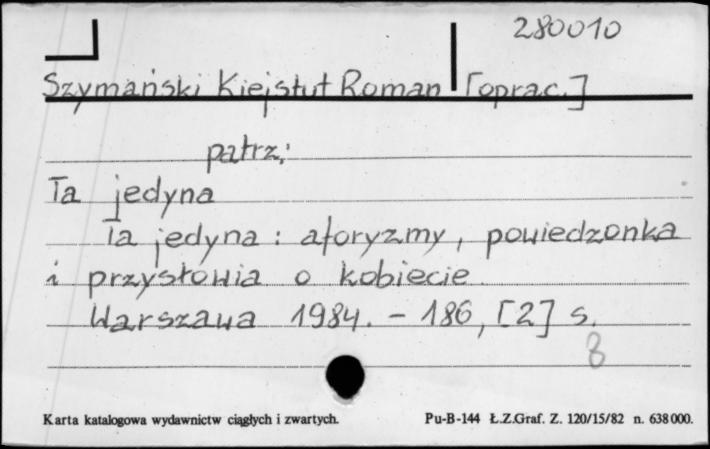 280010
Szymański Kiejstut Roman [oprac.]
patrz:
Ta jedyna
Ta jedyna : aforyzmy, powiedzonka
i przysłowia o kobiecie
Warszawa 1984. - 186, [2] s.
8
Karta katalogowa wydawnictw ciągłych i zwartych. Pu-B-144 Ł.Z.Graf. Z. 120/15/82 n. 638000.